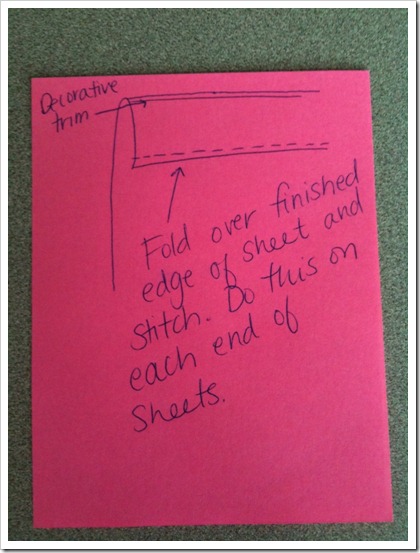 Decorative
trim
Fold over finished
edge of sheet and
Stitch. Do this on
each end of
Sheets.